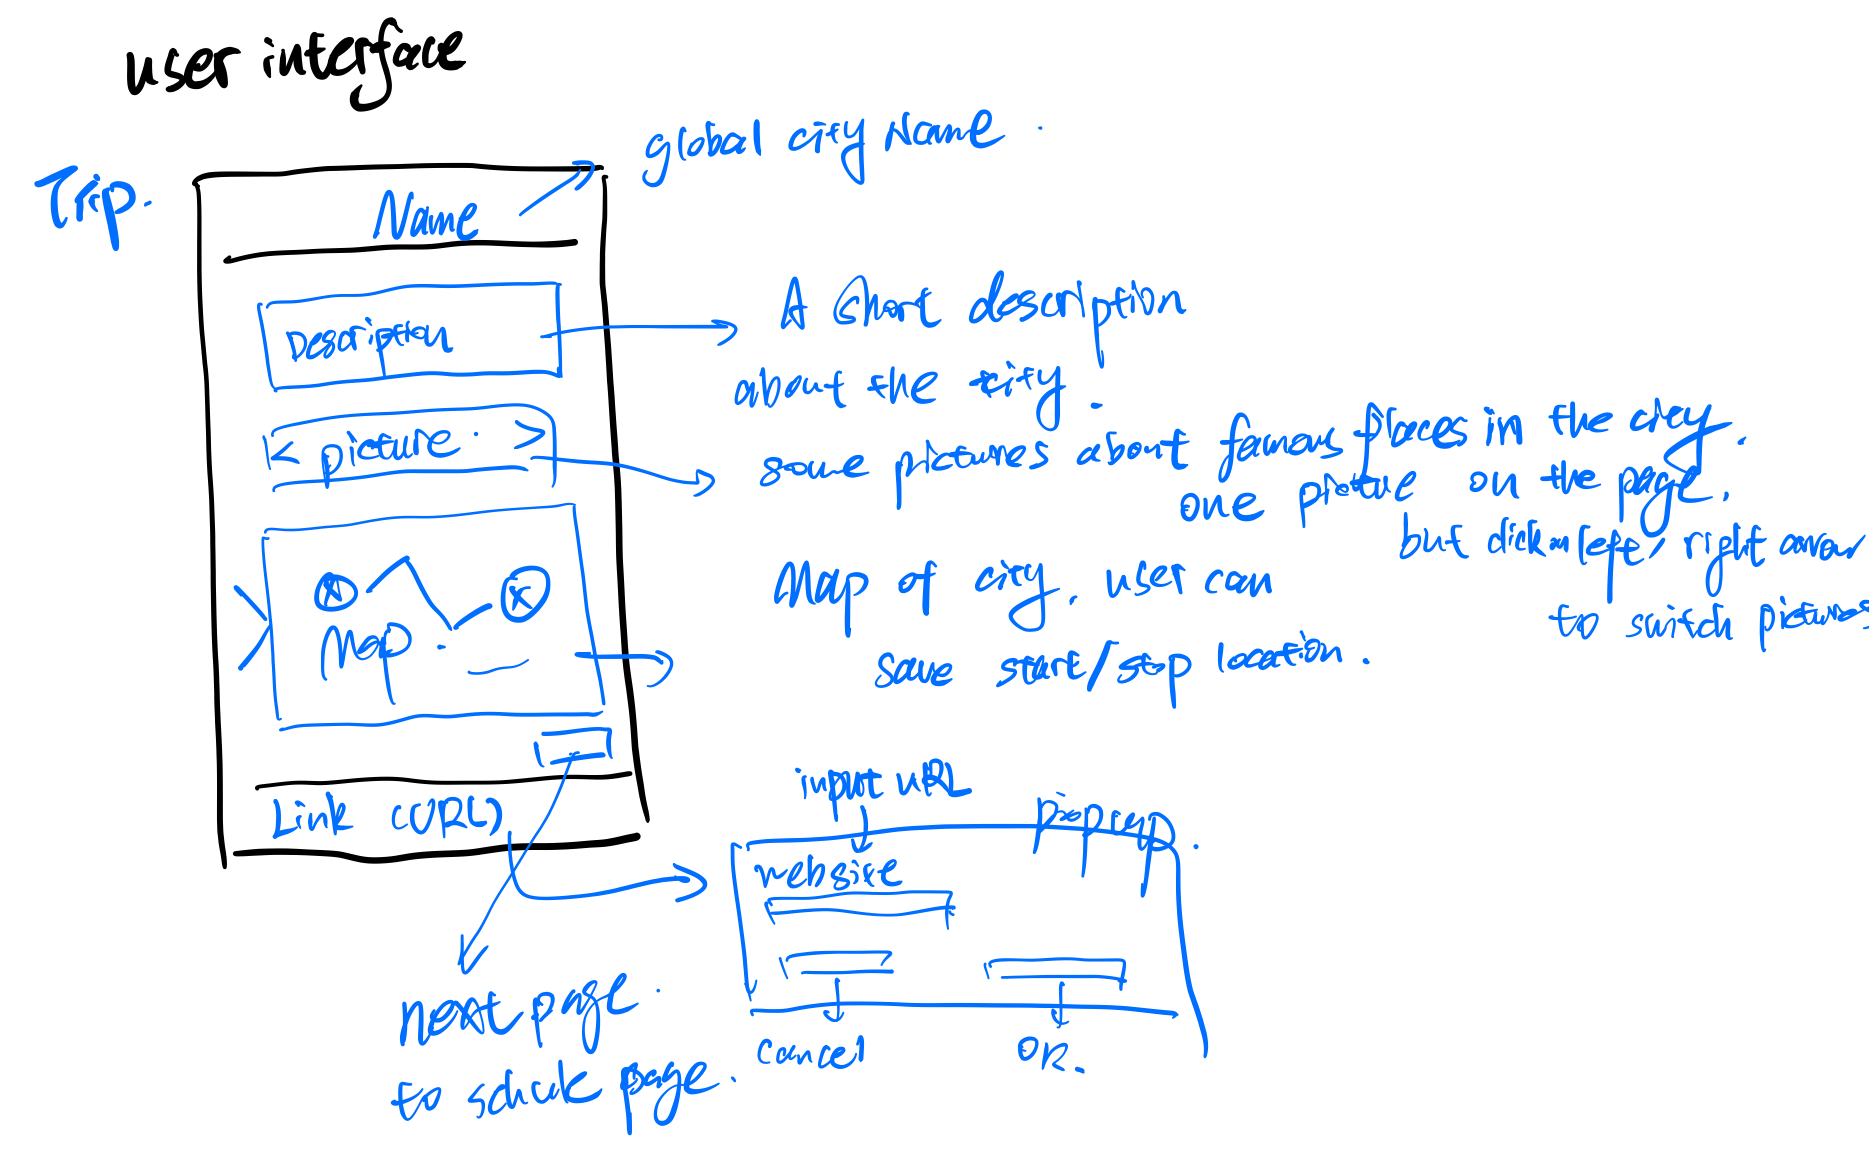 user interface
Trip.
Name
global city Name.
Description
A short description
about the city.
< picture. >
some pictures about famous places in the city.
one picture on the page.
but click on left/right arrow
to switch pictures
Map.
Map of city, user can
save start/stop location.
Link (URL)
input URL
pop up.
website
cancel
OK.
next page.
to page.